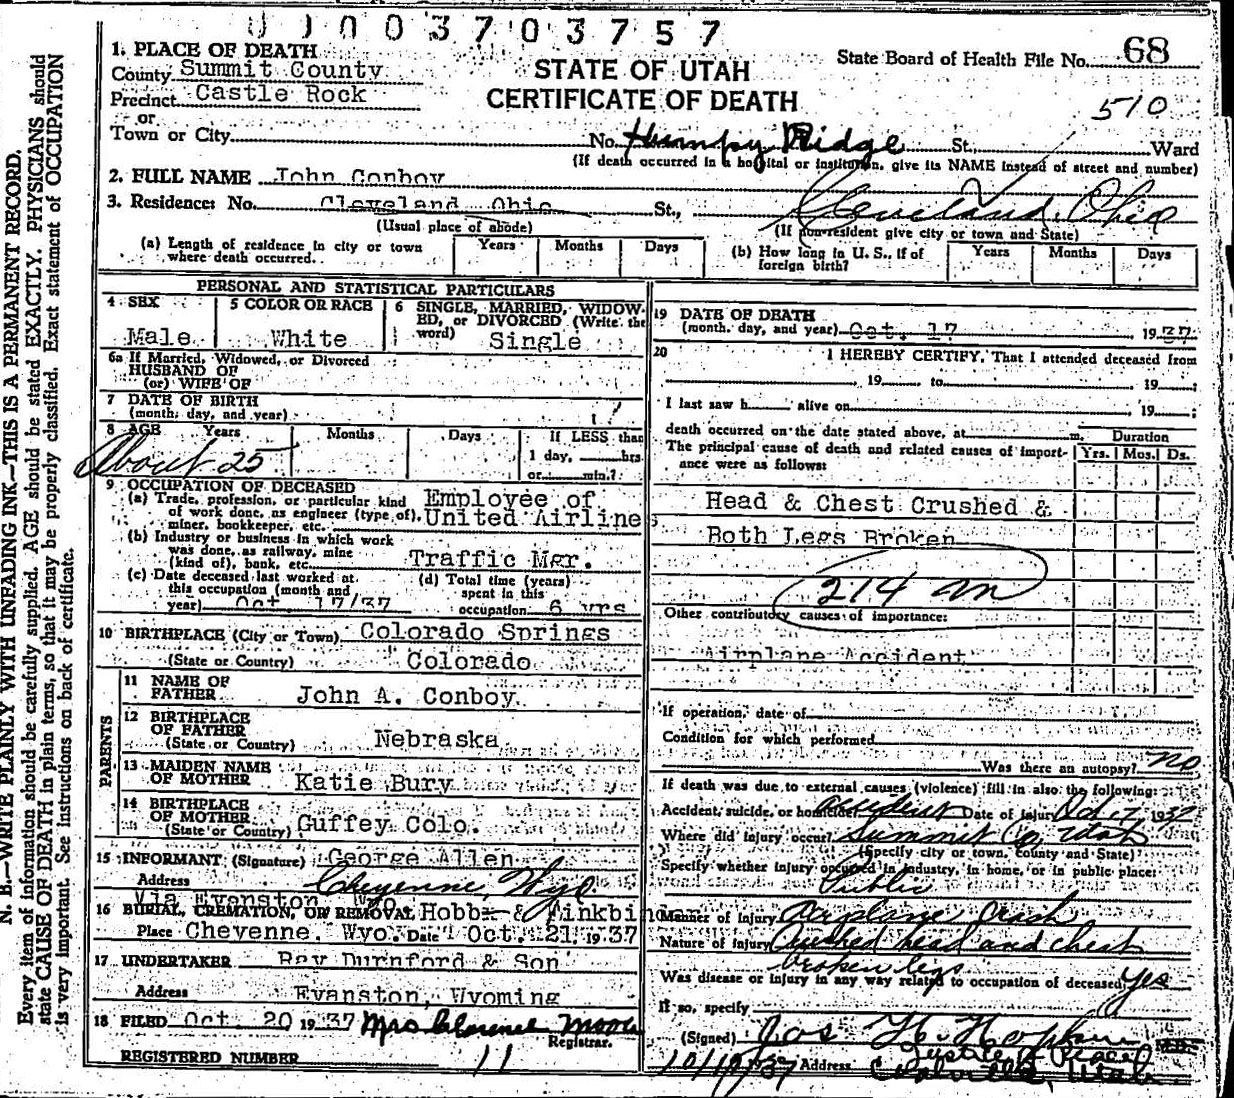 0 1 0 0 3 7 0 3 7 5 7
1. PLACE OF DEATH
County Summit County
Precinct Castle Rock
or
Town or City
STATE OF UTAH
CERTIFICATE OF DEATH
State Board of Health File No. 68
510
No. Humpy Ridge St., Ward
(If death occurred in a hospital or institution, give its NAME instead of street and number)
2. FULL NAME John Conboy
3. Residence: No. Cleveland Ohio St., Cleveland, Ohio
(Usual place of abode)
(If non-resident give city or town and State)
(a) Length of residence in city or town where death occurred.
Years Months Days
(b) How long in U. S., if of foreign birth?
Years Months Days
PERSONAL AND STATISTICAL PARTICULARS
4 SEX
Male
5 COLOR OR RACE
White
6 SINGLE, MARRIED, WIDOWED, or DIVORCED (Write the word) Single
6a If Married, Widowed, or Divorced
HUSBAND OF
(or) WIFE OF
7 DATE OF BIRTH
(month, day, and year)
8 AGE Years Months Days If LESS than
1 day, hrs
or min.?
About 25
9 OCCUPATION OF DECEASED
(a) Trade, profession, or particular kind of work done, as engineer (type of), miner, bookkeeper, etc. Employee of United Airlines
(b) Industry or business in which work was done, as railway, mine (kind of), bank, etc. Traffic Mgr.
(c) Date deceased last worked at this occupation (month and year) Oct 17/37
(d) Total time (years) spent in this occupation 6 yrs
10 BIRTHPLACE (City or Town) Colorado Springs
(State or Country) Colorado
PARENTS
11 NAME OF FATHER John A. Conboy
12 BIRTHPLACE OF FATHER (State or Country) Nebraska
13 MAIDEN NAME OF MOTHER Katie Bury
14 BIRTHPLACE OF MOTHER (State or Country) Guffey Colo.
15 INFORMANT (Signature) George Allen
Address Cheyenne, Wyo
Via Evanston Wyo.
16 BURIAL, CREMATION, OR REMOVAL Hobbs &
Place Cheyenne, Wyo. Date Oct. 21 1937
17 UNDERTAKER Ray Durnford & Son
Address Evanston, Wyoming
18 FILED Oct. 20 1937 Mrs Clarence Moore
Registrar.
REGISTERED NUMBER 11
19 DATE OF DEATH
(month, day, and year) Oct. 17 1937
20 I HEREBY CERTIFY, That I attended deceased from
, 19 to , 19 ;
I last saw h alive on , 19 ;
death occurred on the date stated above, at m.
The principal cause of death and related causes of importance were as follows:
Duration
Yrs. Mos. Ds.
Head & Chest Crushed &
Both Legs Broken
214 am
Other contributory causes of importance:
Airplane Accident
If operation, date of
Condition for which performed
Was there an autopsy? no
If death was due to external causes (violence) fill in also the following:
Accident, suicide, or homicide? accident Date of injury Oct 17, 1937
Where did injury occur? Summit Co, Utah
(Specify city or town, county and State)
Specify whether injury occurred in industry, in home, or in public place:
Public
Manner of injury Airplane Crash
Nature of injury Crushed head and chest
broken legs
Was disease or injury in any way related to occupation of deceased? yes
If so, specify
(Signed) Jos H. M.D.
Justice of Peace
10/19/37 Address Coalville, Utah.
N. B.—WRITE PLAINLY WITH UNFADING INK—THIS IS A PERMANENT RECORD.
Every item of information should be carefully supplied. AGE should be stated EXACTLY. PHYSICIANS should
state CAUSE OF DEATH in plain terms, so that it may be properly classified. Exact statement of OCCUPATION
is very important. See instructions on back of certificate.